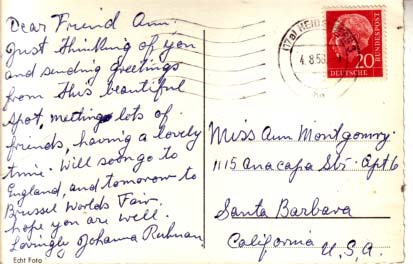 Dear Friend Ann.
Just thinking of you
and sending greetings
from this beautiful
spot, meeting lots of
friends, having a lovely
time. Will soon go to
England, and tomorrow to
Brussel Worlds Fair.
hope you are well.
Lovingly Johanna
Echt Foto
(17a) HEIDELBERG
4.8.58
20
DEUTSCHE
BUNDESPOST
Miss Ann Montgomry
1115 Anacapa St. Apt 6
Santa Barbara
California
U.S.A.